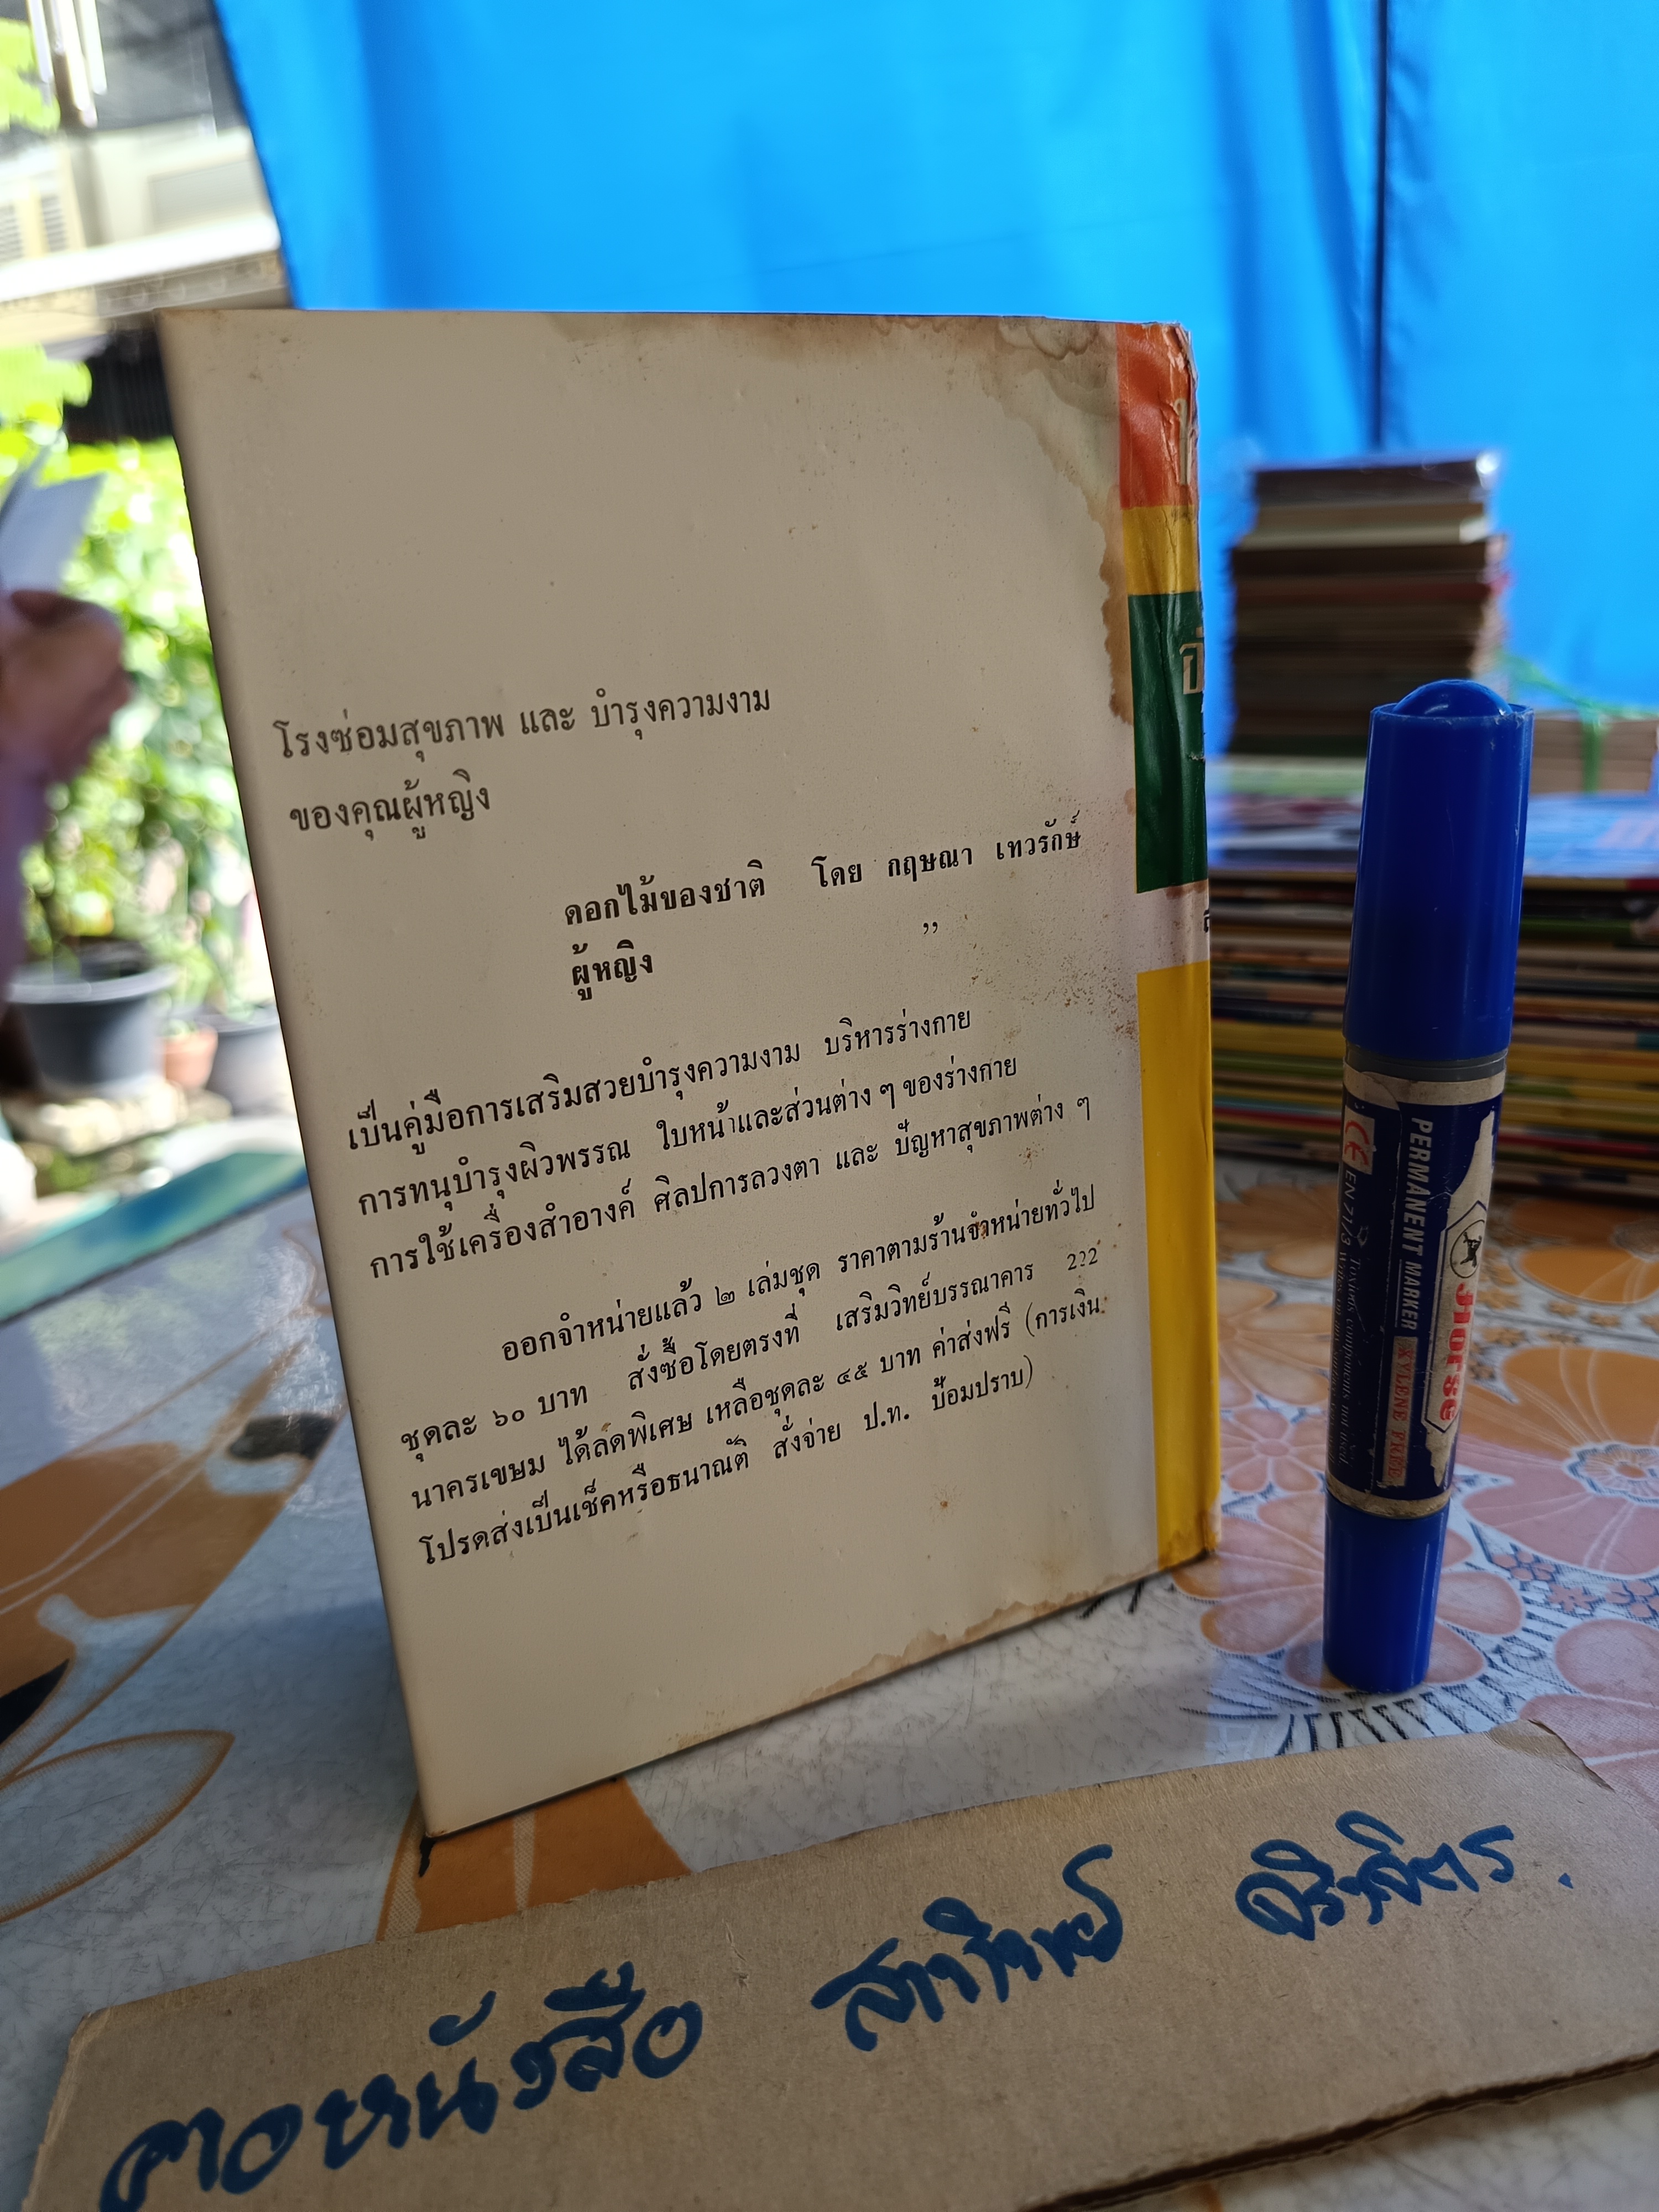 โรงซ่อมสุขภาพ และ บำรุงความงาม
ของคุณผู้หญิง
ดอกไม้ของชาติ โดย กฤษณา เทวรักษ์
ผู้หญิง ,,
เป็นคู่มือการเสริมสวยบำรุงความงาม บริหารร่างกาย
การทนุบำรุงผิวพรรณ ใบหน้าและส่วนต่าง ๆ ของร่างกาย
การใช้เครื่องสำอางค์ ศิลปการลวงตา และ ปัญหาสุขภาพต่าง ๆ
ออกจำหน่ายแล้ว ๒ เล่มชุด ราคาตามร้านจำหน่ายทั่วไป
ชุดละ ๖๐ บาท สั่งซื้อโดยตรงที่ เสริมวิทย์บรรณาคาร 222
นาครเขษม ได้ลดพิเศษ เหลือชุดละ ๔๕ บาท ค่าส่งฟรี (การเงิน
โปรดส่งเป็นเช็คหรือธนาณัติ สั่งจ่าย ป.ท. ป้อมปราบ)
Horse
PERMANENT MARKER XYLENE FREE
CE EN 71/3
คอหนังสือ